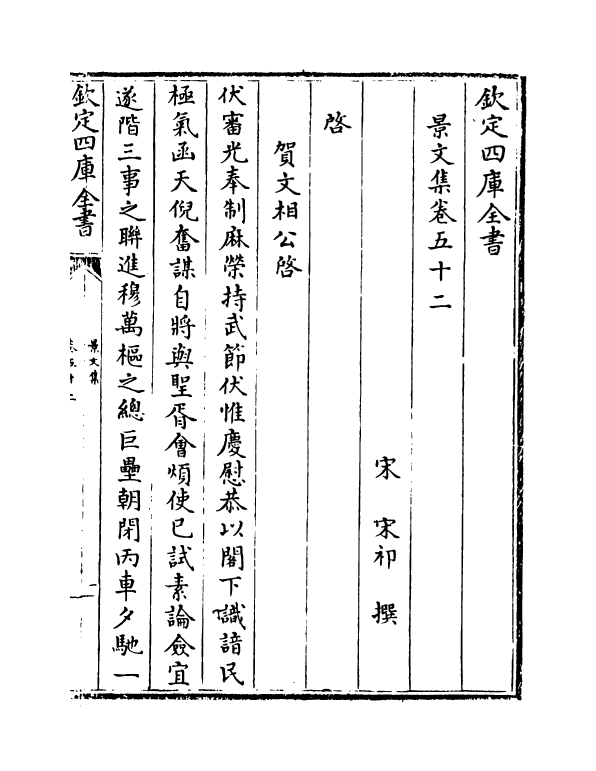 欽定四庫全書
景文集卷五十二
宋 宋祁 撰
啓
賀文相公啓
伏審光奉制麻榮持武節伏惟慶慰恭以閣下識諳民
極氣函天倪奮謀自將與聖胥會煩使已試素論僉宜
遂階三事之聯進穆萬樞之總巨壘朝閉丙車夕馳一
欽定四庫全書
景文集
卷五十二
一